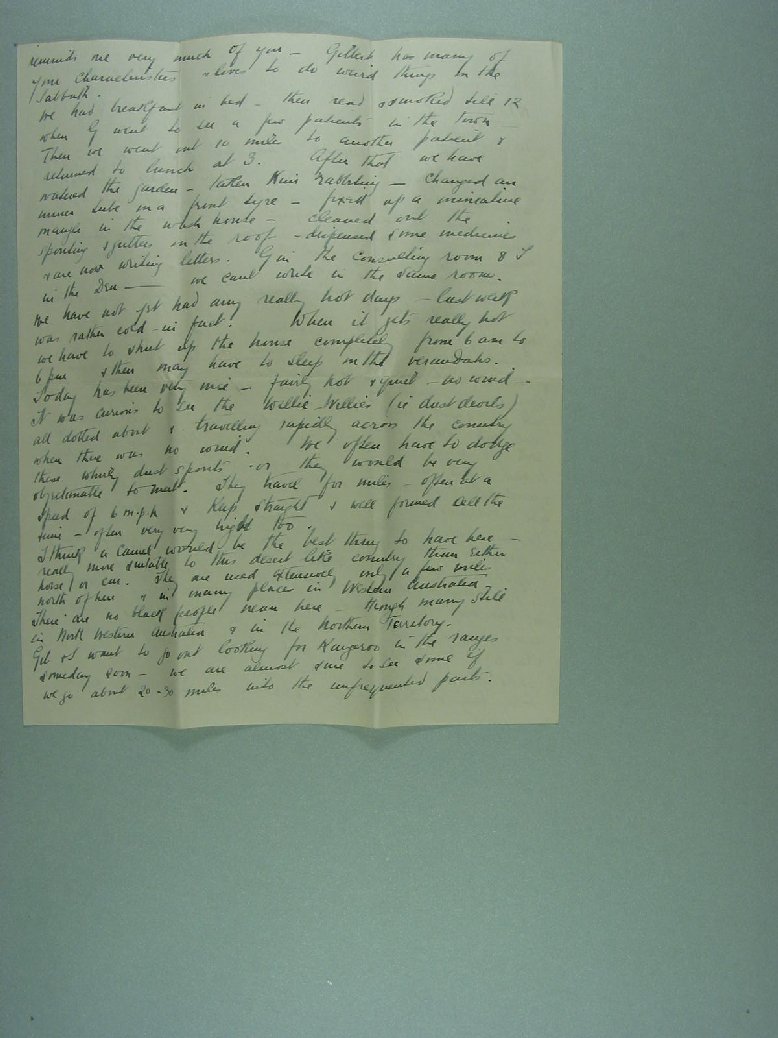 reminds me very much of you — Gilbert has many of
your characteristics & loves to do weird things on the
Sabbath.
We had breakfast in bed — then read & smoked till 12
when G went to see a few patients in the town —
Then we went out 10 miles to another patient &
returned to lunch at 3. After that we have
watered the garden — taken Kim rabbiting — changed an
inner tube on a front tyre — fixed up a miniature
manger in the wash house — cleaned out the
spouting & gutters on the roof — dispensed some medicine
& are now writing letters. G in the consulting room & I
in the Den — we can't write in the same room.
We have not yet had any really hot days — last week
was rather cold — in fact. When it gets really hot
we have to shut up the house completely from 6 am to
6 pm & then may have to sleep on the verandahs.
Today has been very nice — fairly hot & quiet — no wind —
It was curious to see the Willie-Willies (ie dust devils)
all dotted about & travelling rapidly across the country
when there was no wind. We often have to dodge
these whirly dust spouts — or they would be very
to meet. They travel for miles — often at a
speed of 6 m.p.h & keep straight & well formed all the
time — often very very high too.
I think a Camel would be the best thing to have here —
really more suitable to this desert like country than either
horse / or car. They are used extensively only a few miles
north of here & in many places in Western Australia —
There are no black people near here — though many still
in North Western Australia & in the Northern Territory.
Gil & I want to go out looking for Kangaroo in the ranges
someday soon — we are almost sure to see some if
we go about 20-30 miles into the unfrequented parts.